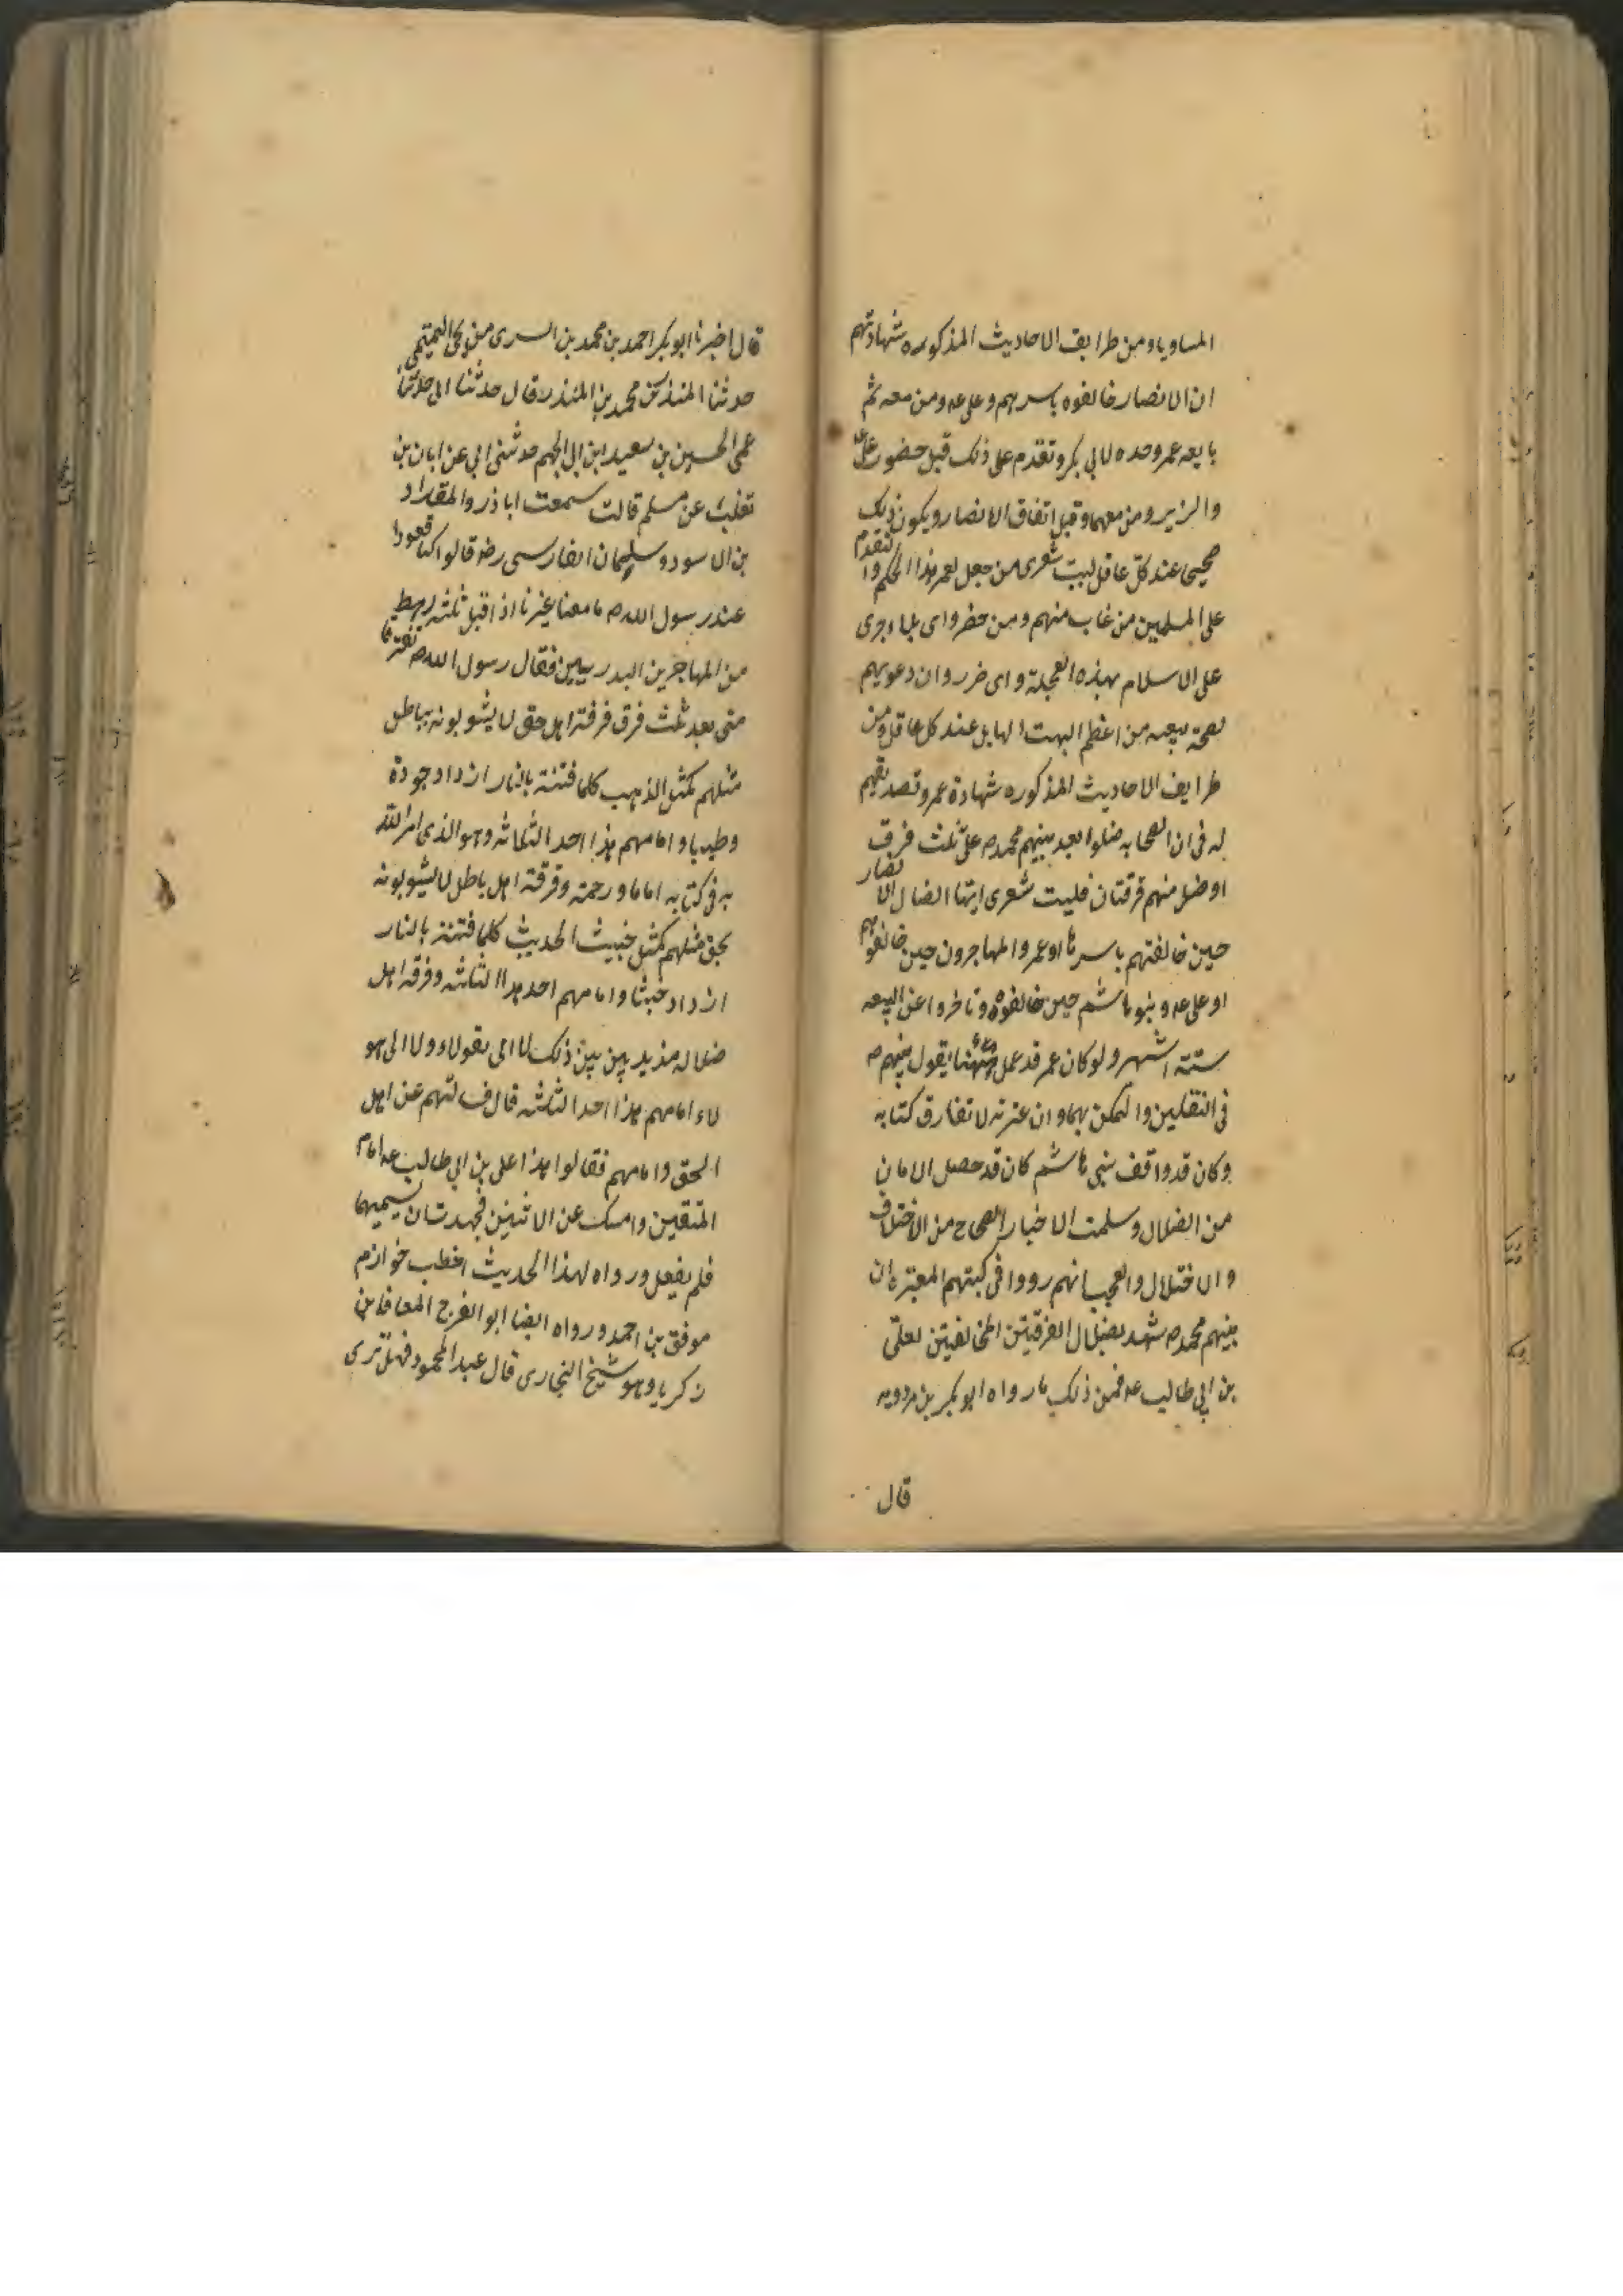 المساويا ومن طرايف الاحاديث المذكوره شهادتهم
ان الانصار خالفوه باسرهم وعلى عه ومن معه ثم
بايعه عمر وحده لابي بكر وتقدم على ذلك قبل حضور على عه
والزبير ومن معهما وقبل اتفاق الانصار ويكون ذلك
صحيحا عند كل عاقل ليت شعرى من جعل لعمر هذا الحكم والتقدم
على المسلمين من غاب منهم ومن حضر واى بلاء جرى
على الاسلام بهذه العجلة واى ضرر وان دعويهم
لصحة بيعه من اعظم البهت الهايل عند كل عاقل ومن
طرايف الاحاديث المذكوره شهادة عمر وتصديقهم
له فى ان الصحابه ضلوا بعد نبيهم محمد ص على ثلث فرق
اوضل منهم فرقتان فليت شعرى ايتها الضال الانصار
حين خالفتهم باسرها او عمر والمهاجرون حين خالفوهم
او على عه وبنو هاشم حين خالفوه وتاخروا عن البيعه
ستة اشهر ولو كان عمر قد عمل يقول نبيهم ص
فى الثقلين والتمسك بهما وان عترته لا تفارق كتابه
وكان قد واقف بنى هاشم كان قد حصل الامان
من الضلال وسلمت الاخبار الصحاح من الاختلاف
والاختلال والعجب انهم رووا فى كتبهم المعتبره ان
نبيهم محمد ص شهد بضلال الفرقتين المخالفتين لعلى
بن ابى طالب عه فمن ذلك ما رواه ابو بكر بن مردويه
قال
قال اخبرنا ابو بكر احمد بن محمد بن السرى بن يحى التميمى
حدثنا المنذر بن محمد بن المنذر قال حدثنا ابى حدثنا
عمى الحسين بن سعيد ابن ابى الجهم حدثنى ابى عن ابان بن
تغلب عن مسلم قالت سمعت اباذر والمقداد
بن الاسود وسلمان الفارسى رضه قالوا كنا قعودا
عند رسول الله ص ما معنا غيرنا اذ اقبل ثلثه رهط
من المهاجرين البدريين فقال رسول الله ص تفترقا
متى بعد ثلث فرق فرقة اهل حق لا يشوبونه بباطل
مثلهم كمثل الذهب كلما فتنته بالنار ازداد جودة
وطيبا وامامهم هذا احد الثلاثه وهو الذى امر الله
به فى كتابه اماما ورحمة وفرقة اهل باطل لا يشوبونه
بحق مثلهم كمثل خبيث الحديث كلما فتنته بالنار
ازداد خبثا وامامهم احد هذا الثلثه وفرقه اهل
ضلاله مذبذبين بين ذلك لا الى هؤلاء ولا الى هو
لاء امامهم هذا احد الثلثه قال فسالتهم عن اهل
الحق وامامهم فقالوا هذا على بن ابى طالب عه امام
المتقين وامسك عن الاثنين فجهدت ان يسميهما
فلم يفعل ورواه لهذا الحديث اخطب خوارزم
موفق بن احمد ورواه ايضا ابو الفرج المعافا بن
زكريا وهو شيخ البخارى قال عبد المحمود فهل ترى